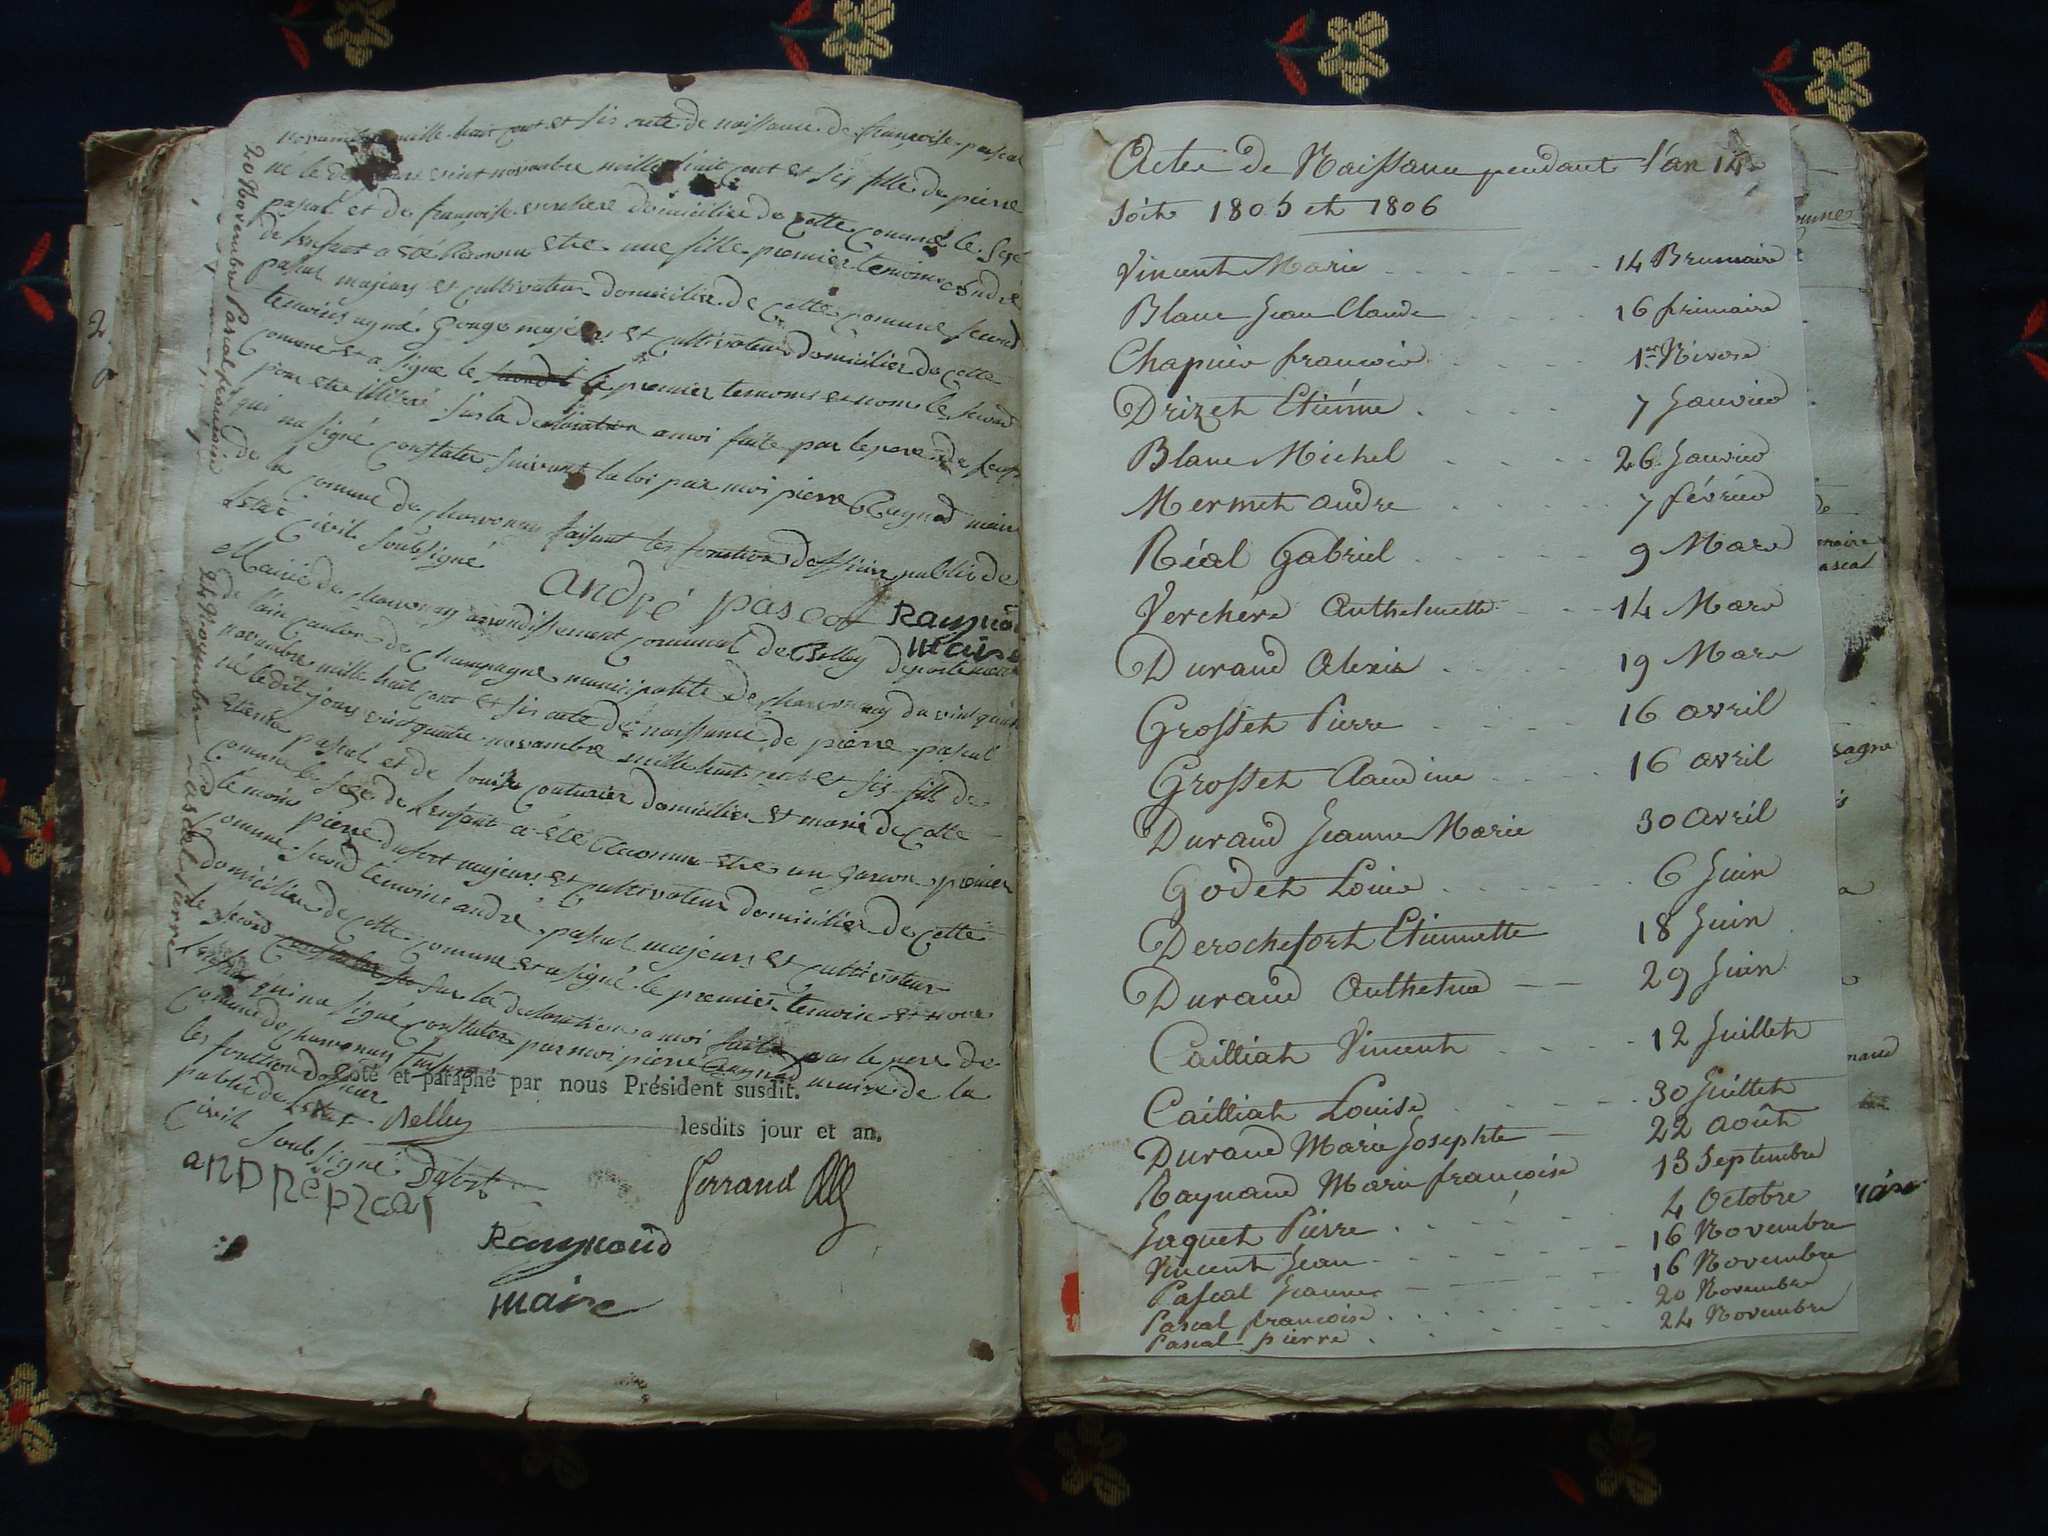 novambre mille huit cent et sis acte de naissance de françoise pascal
né le vint novambre mille huit cent et sis fille de pierre
pascal et de françoise domiciliée de cette comune le sexe
de lenfant a été Reconnu etre une fille premier temoins andré
pascal majeurs et cultivateur domicilier de cette comune second
temoins aymé gouge majeurs et cultivateur domicilier de cette
comune et a signé le second le premier temoins et non le second
pour etre illitéré sur la declaration a moi faite par le pere de
qui na signé constater suivant la loi par moi pierre maire
de la comune de faisant les fonction dofficier public de
Letat Civil Soubsigné
andré pascal Raynaud
maire
20 Novembre Pascal francoise
Mairie de arondissement comunal de Belley departement
de lain canton de Champagne municipalite de du vint quatre
novembre mille huit cent et sis acte de naissance de pierre pascal
né le dit jours vint quatre novambre mille huit cent et sis fils de
etienne pascal et de louise couturier domicilier et marié de cette
comune le sexe de Lenfant a été Reconnu etre un garcon premier
témoins pierre dufort majeurs et cultivateur domicilier de cette
comune second temoins andré pascal majeurs et cultivateur
domicilier de cette comune et a signé le premier temoins et non
le second sur la declaration a moi faite par le pere de
Lenfant qui na signé constater par moi pierre maire de la
comune de faisant
les fonction doficier
public de Letat
Civil Soubsigné
24 Novembre Pascal Pierre
Coté et paraphé par nous Président susdit.
Belley lesdits jour et an.
andre pascal Dufort Ferrand
Raynaud
maire
Actes de Naissance pendant l'an 14
soit 1805 et 1806
Vincent Marie 14 Brumaire
Blanc Jean Claude 16 frimaire
Chapuis francois 1er Nivose
Drizet Etiénne 7 Janvier
Blanc Michel 26 Janvier
Mermet andre 7 février
Réal Gabriel 9 Mars
Verchére Anthelmette 14 Mars
Durand Alexis 19 Mars
Grosset Pierre 16 avril
Grosset Claudine 16 avril
Durand Jeanne Marie 30 avril
Godet Louise 6 Juin
Derochefort Etiennette 18 Juin
Durand Anthelme 29 Juin
Cailliat Vincent 12 Juillet
Cailliat Louise 30 Juillet
Durand Marie Josephte 22 août
Raynaud Marie francoise 13 Septembre
Jaquet Pierre 4 Octobre
Vincent Jean 16 Novembre
Pascal Jeanne 16 Novembre
Pascal francoise 20 Novembre
Pascal pierre 24 Novembre